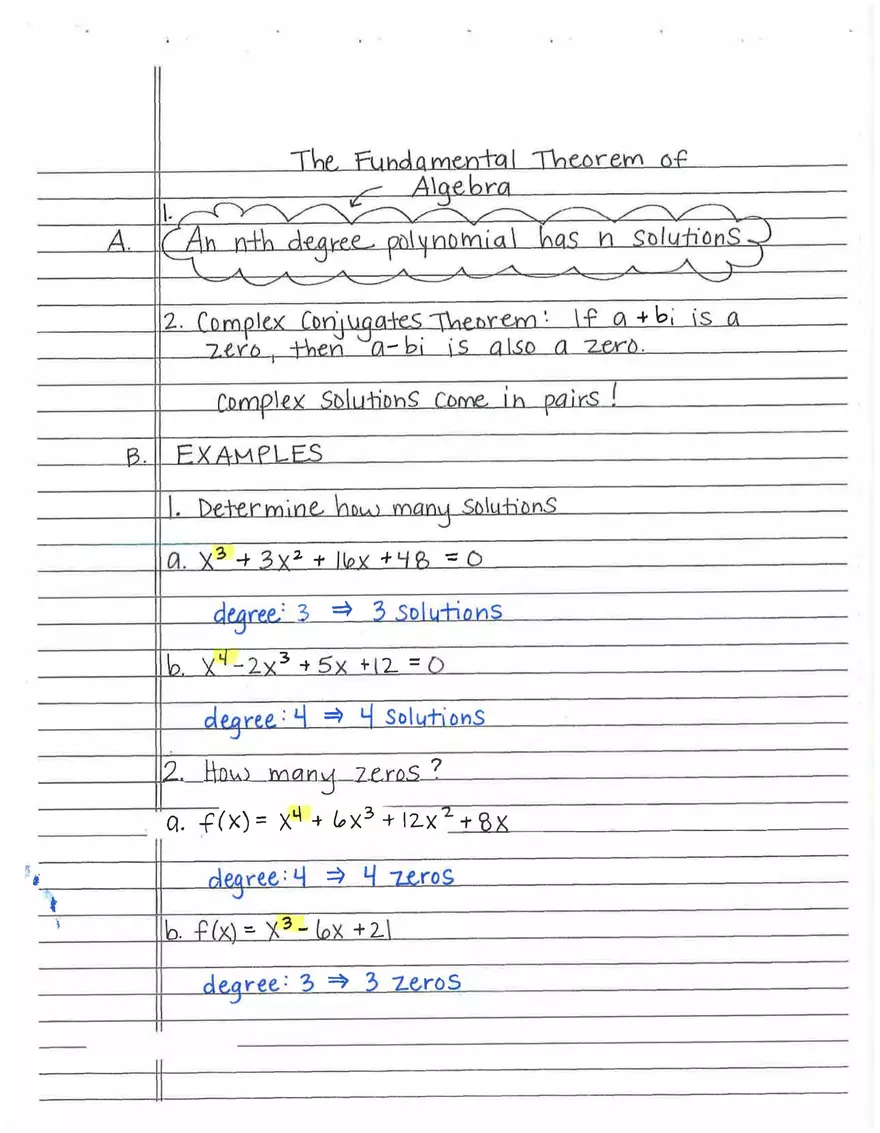 The Fundamental Theorem of
Algebra
1.
A. An nth degree polynomial has n solutions
2. Complex Conjugates Theorem: If a+bi is a
zero, then a-bi is also a zero.
Complex solutions come in pairs!
B. EXAMPLES
1. Determine how many solutions
a. x³ + 3x² + 16x + 48 = 0
degree: 3 ⇒ 3 solutions
b. x⁴ - 2x³ + 5x + 12 = 0
degree: 4 ⇒ 4 solutions
2. How many zeros?
a. f(x) = x⁴ + 6x³ + 12x² + 8x
degree: 4 ⇒ 4 zeros
b. f(x) = x³ - 6x + 21
degree: 3 ⇒ 3 zeros